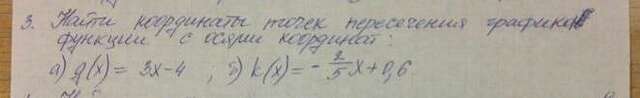 3. Найти координаты точек пересечения графиков
функции с осями координат:
а) g(x) = 3x-4 ; б) k(x) = - 2/5 x + 0,6